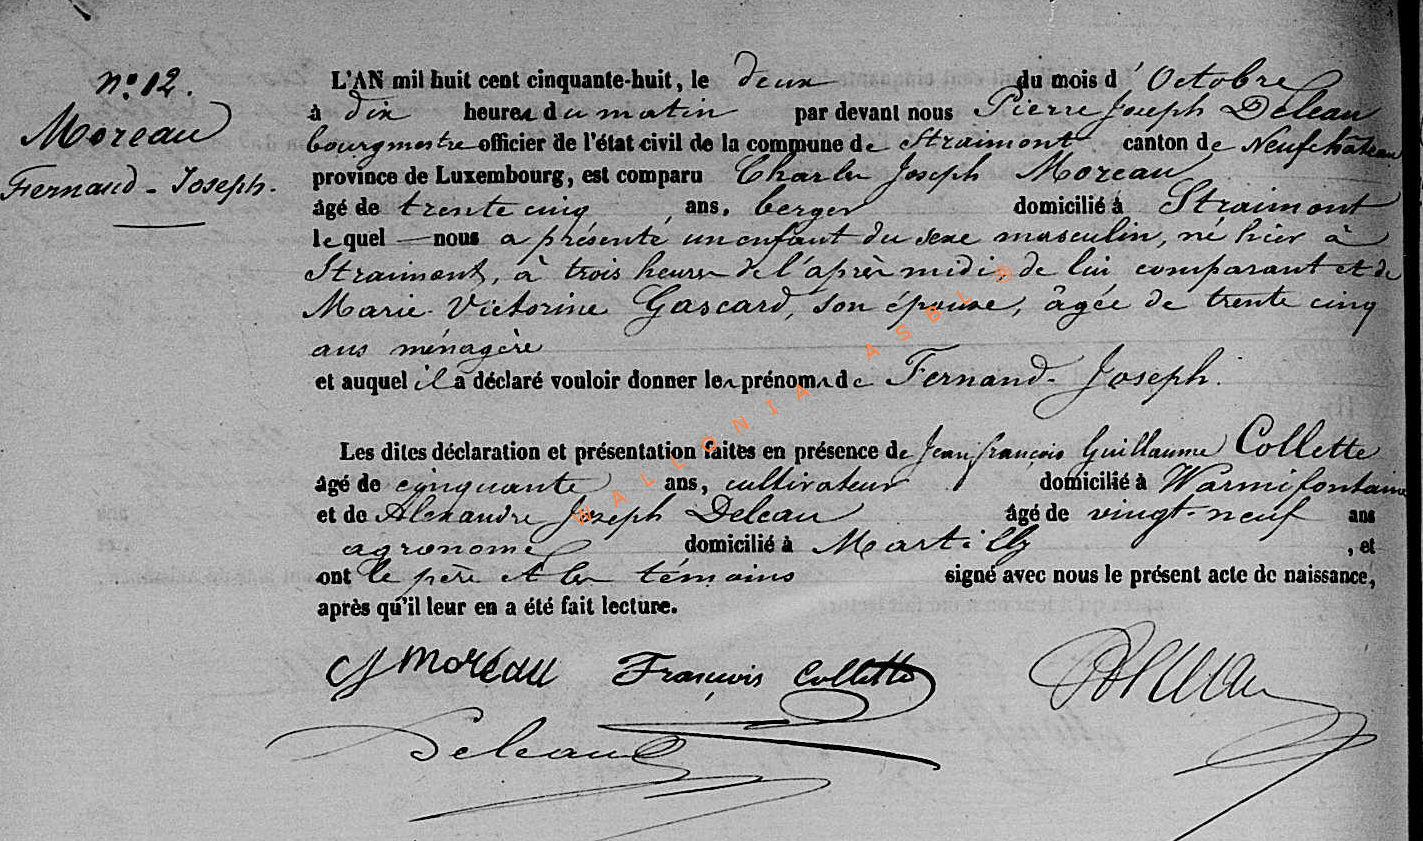 n° 12.
Moreau
Fernand-Joseph.
L'AN mil huit cent cinquante-huit, le deux du mois d'Octobre
à dix heures du matin par devant nous Pierre Joseph Deleau
bourgmestre officier de l'état civil de la commune de Straimont canton de Neufchâteau
province de Luxembourg, est comparu Charles Joseph Moreau
âgé de trente cinq ans, berger domicilié à Straimont
lequel nous a présenté un enfant du sexe masculin, né hier à
Straimont, à trois heures de l'après midi, de lui comparant et de
Marie-Victorine Gascard, son épouse, âgée de trente cinq
ans ménagère
et auquel il a déclaré vouloir donner les prénoms de Fernand-Joseph.
Les dites déclaration et présentation faites en présence de Jean françois Guillaume Collette
âgé de cinquante ans, cultivateur domicilié à Warmifontaine
et de Alexandre Joseph Deleau âgé de vingt-neuf ans
agronome domicilié à Martilly, et
ont le père et les témoins signé avec nous le présent acte de naissance,
après qu'il leur en a été fait lecture.
CJ Moreau François Collette
Deleau
WALLONIA ASBL